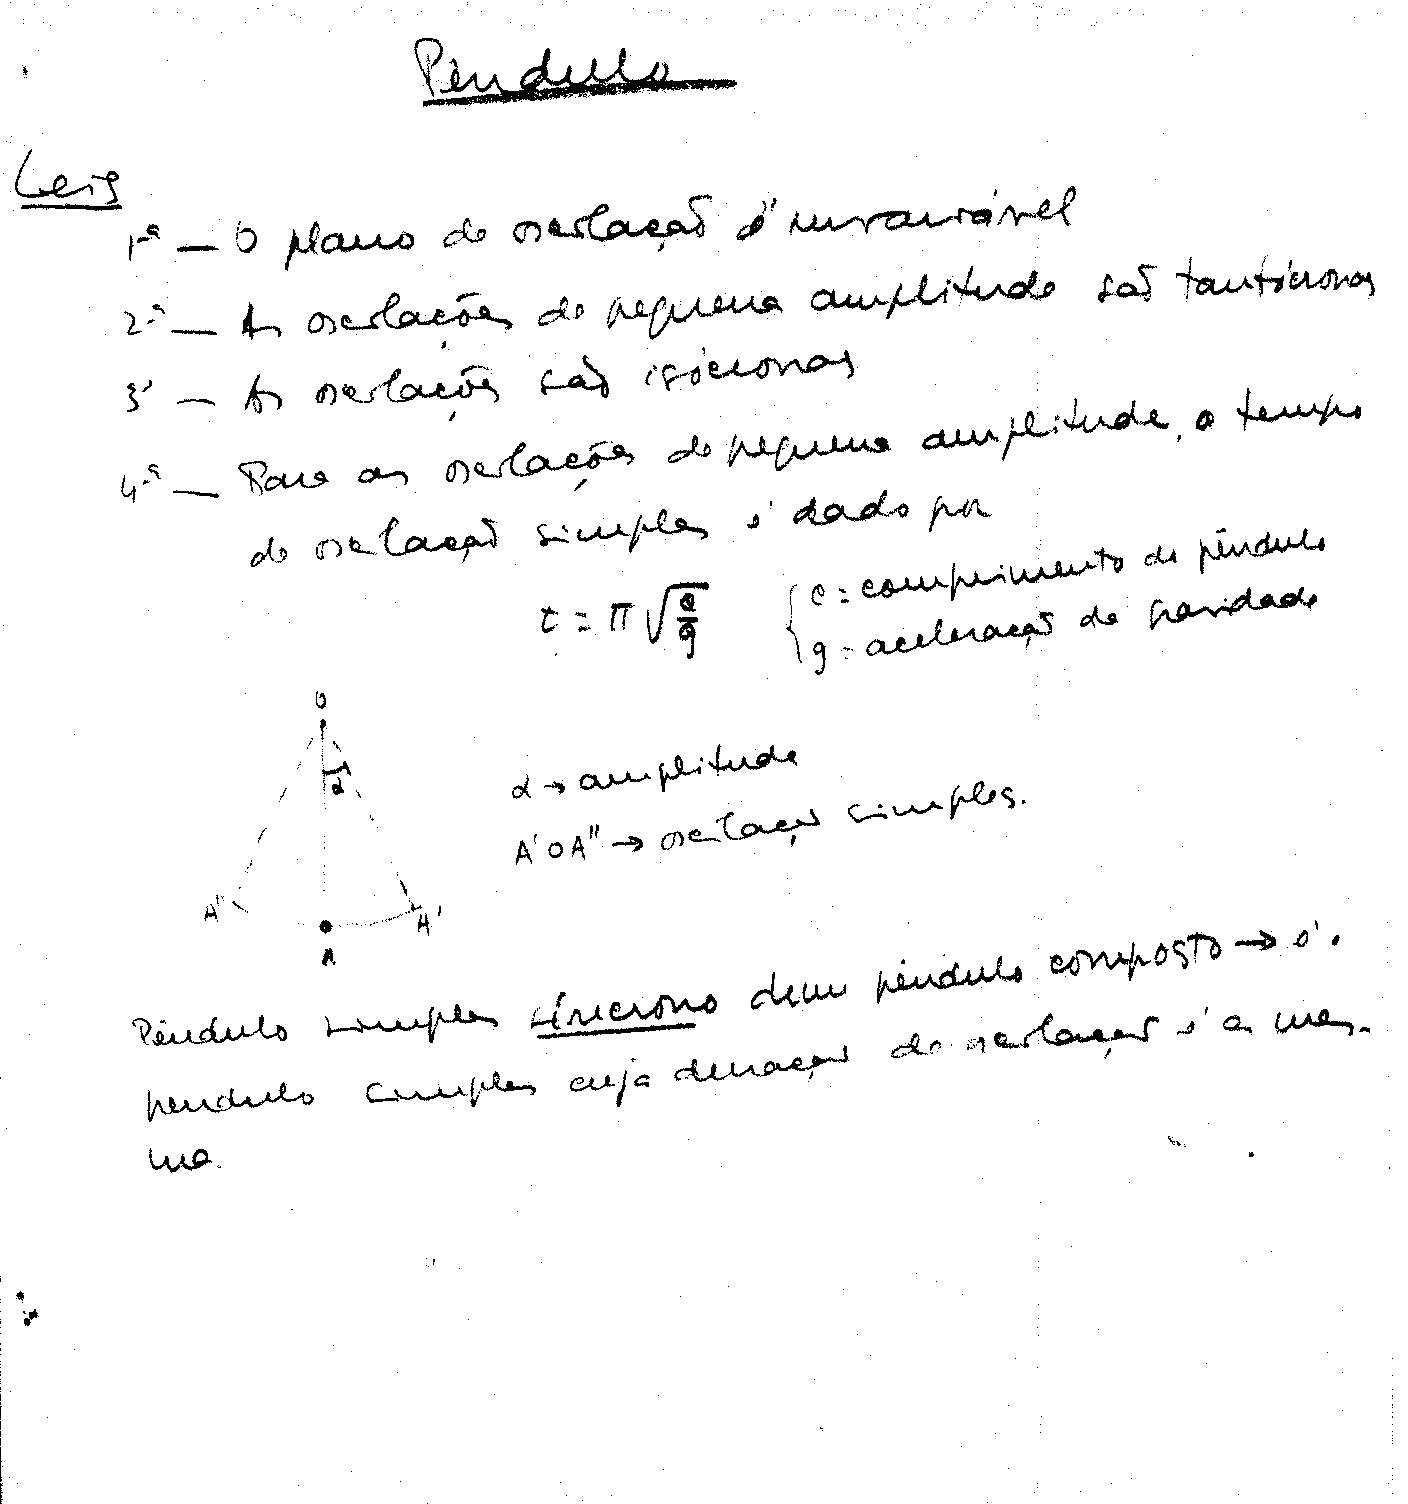 Pêndulo
Leis
1ª — O plano de oscilação é invariável
2ª — As oscilações de pequena amplitude são tautócronas
3ª — As oscilações são isócronas
4ª — Para as oscilações de pequena amplitude, o tempo
de oscilação simples é dado por
t = π √(l/g) { l = comprimento do pêndulo
g = aceleração da gravidade
O
α
α → amplitude
A'OA" → oscilação simples.
A" A'
A
Pêndulo simples síncrono dum pêndulo composto → é o
pêndulo simples cuja duração de oscilação é a mes-
ma.